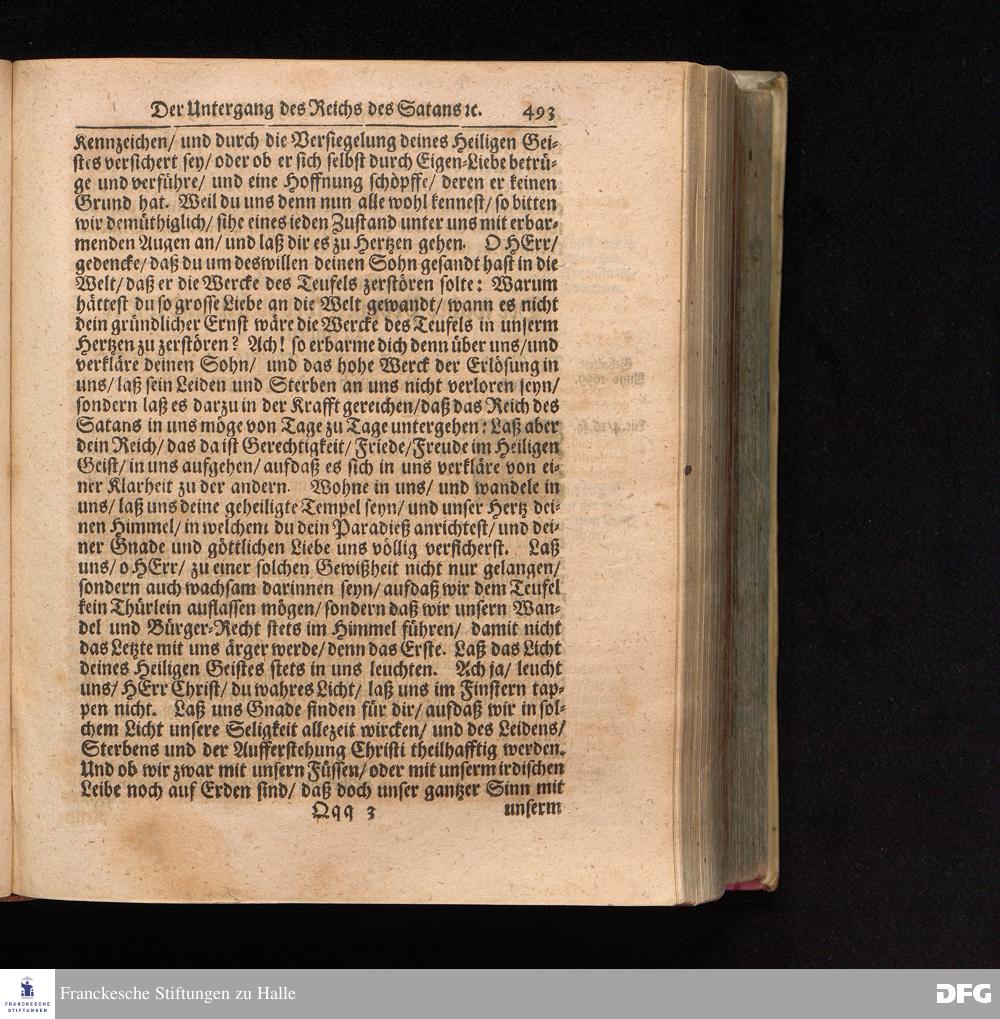 Der Untergang des Reichs des Satans ꝛc. 493
Kennzeichen/ und durch die Versiegelung deines Heiligen Gei-
stes versichert sey/ oder ob er sich selbst durch Eigen-Liebe betrü-
ge und verführe/ und eine Hoffnung schöpffe/ deren er keinen
Grund hat. Weil du uns denn nun alle wohl kennest/ so bitten
wir demüthiglich/ sihe eines ieden Zustand unter uns mit erbar-
menden Augen an/ und laß dir es zu Hertzen gehen. O HErr/
gedencke/ daß du um deswillen deinen Sohn gesandt hast in die
Welt/ daß er die Wercke des Teufels zerstören solte: Warum
hättest du so grosse Liebe an die Welt gewandt/ wann es nicht
dein gründlicher Ernst wäre die Wercke des Teufels in unserm
Hertzen zu zerstören? Ach! so erbarme dich denn über uns/und
verkläre deinen Sohn/ und das hohe Werck der Erlösung in
uns/ laß sein Leiden und Sterben an uns nicht verloren seyn/
sondern laß es darzu in der Krafft gereichen/daß das Reich des
Satans in uns möge von Tage zu Tage untergehen: Laß aber
dein Reich/ das da ist Gerechtigkeit/ Friede/Freude im Heiligen
Geist/ in uns aufgehen/ aufdaß es sich in uns verkläre von ei-
ner Klarheit zu der andern. Wohne in uns/ und wandele in
uns/ laß uns deine geheiligte Tempel seyn/ und unser Hertz dei-
nen Himmel/ in welchem du dein Paradieß anrichtest/ und dei-
ner Gnade und göttlichen Liebe uns völlig versicherst. Laß
uns/ o HErr/ zu einer solchen Gewißheit nicht nur gelangen/
sondern auch wachsam darinnen seyn/ aufdaß wir dem Teufel
kein Thürlein auflassen mögen/ sondern daß wir unsern Wan-
del und Bürger-Recht stets im Himmel führen/ damit nicht
das Letzte mit uns ärger werde/ denn das Erste. Laß das Licht
deines Heiligen Geistes stets in uns leuchten. Ach ja/ leucht
uns/ HErr Christ/ du wahres Licht/ laß uns im Finstern tap-
pen nicht. Laß uns Gnade finden für dir/ aufdaß wir in sol-
chem Licht unsere Seligkeit allezeit wircken/ und des Leidens/
Sterbens und der Aufferstehung Christi theilhafftig werden.
Und ob wir zwar mit unsern Füssen/ oder mit unserm irdischen
Leibe noch auf Erden sind/ daß doch unser gantzer Sinn mit
Qqq 3 unserm
FRANCKESCHE
STIFTUNGEN
Franckesche Stiftungen zu Halle
DFG